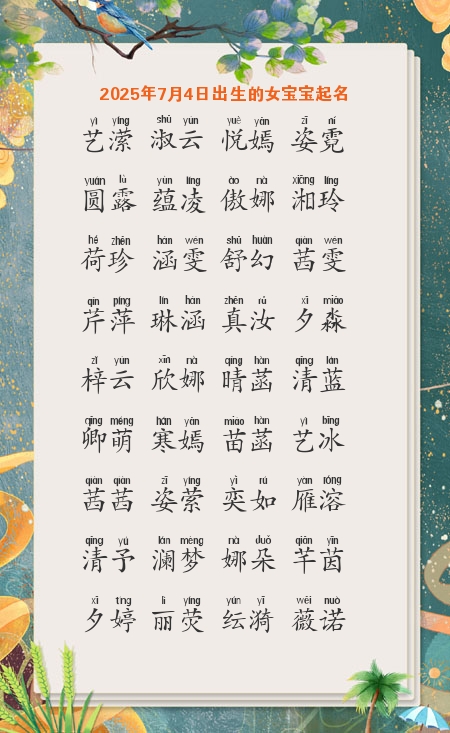 2025年7月4日出生的女宝宝起名
yì yíng shū yún yuè yān zī ní
艺潆 淑云 悦嫣 姿霓
yuán lù yùn líng ào nà xiāng líng
圆露 蕴凌 傲娜 湘玲
hé zhēn hán wén shū huàn qiàn wén
荷珍 涵雯 舒幻 茜雯
qín píng lín hán zhēn rǔ xī miǎo
芹萍 琳涵 真汝 夕淼
zǐ yún xīn nà qíng hàn qīng lán
梓云 欣娜 晴菡 清蓝
qīng méng hán yān miáo hàn yì bīng
卿萌 寒嫣 苗菡 艺冰
qiàn qiàn zī yíng yì rú yàn róng
茜茜 姿萦 奕如 雁溶
qīng yú lán mèng nà duǒ qiān yīn
清予 澜梦 娜朵 芊茵
xī tíng lì yíng yún yī wēi nuò
夕婷 丽荧 纭漪 薇诺